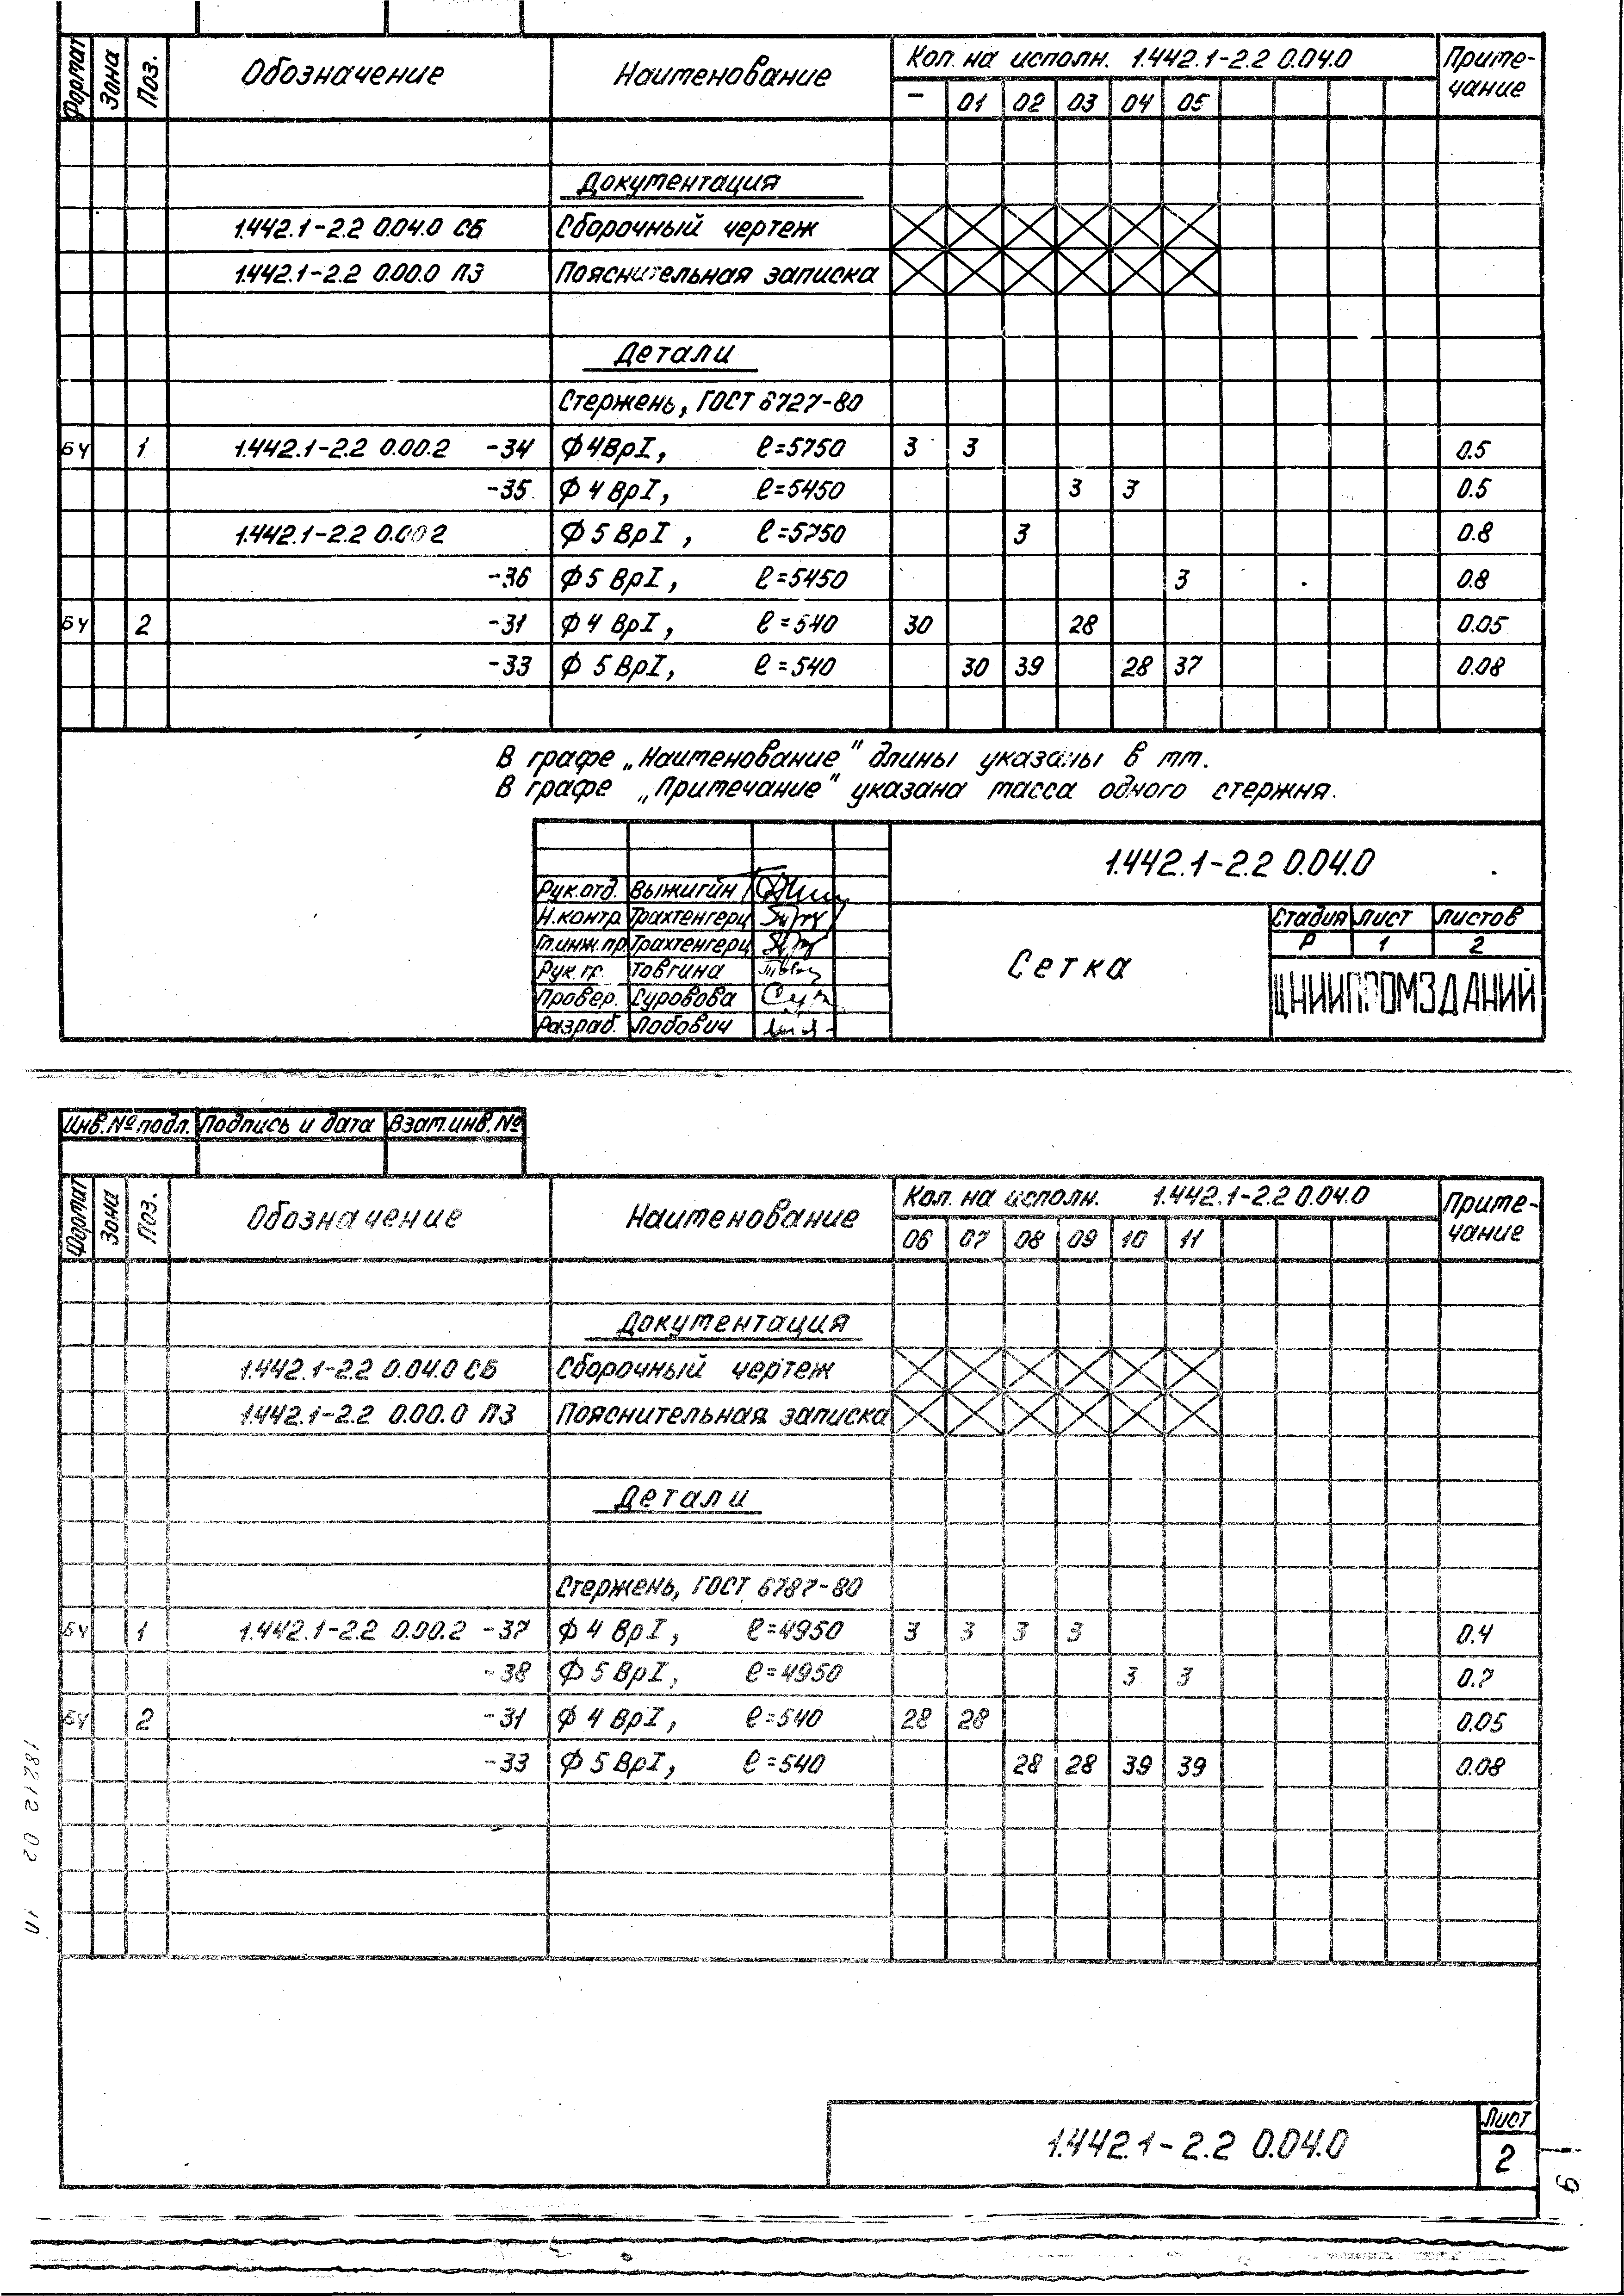 Формат Зона Поз. Обозначение Наименование Кол. на исполн. 1.442.1-2.2 0.04.0 Приме-чание
– 01 02 03 04 05
Документация
1.442.1-2.2 0.04.0 СБ Сборочный чертеж
1.442.1-2.2 0.00.0 ПЗ Пояснительная записка
Детали
Стержень, ГОСТ 6727-80
БЧ 1 1.442.1-2.2 0.00.2 -34 Ф4ВрI, ℓ=5750 3 3 0.5
-35 Ф4 ВрI, ℓ=5450 3 3 0.5
1.442.1-2.2 0.00 2 Ф5 ВрI, ℓ=5750 3 0.8
-36 Ф5 ВрI, ℓ=5450 3 0.8
БЧ 2 -31 Ф4 ВрI, ℓ=540 30 28 0.05
-33 Ф 5ВрI, ℓ=540 30 39 28 37 0.08
В графе „Наименование" длины указаны в мм.
В графе „Примечание" указана масса одного стержня.
1.442.1-2.2 0.04.0
Рук.отд. Выжигин
Н.контр Трахтенгерц
Гл.инж.пр Трахтенгерц
Рук.гр. Товгина
Провер. Суровова
Разраб. Лобович
Сетка
Стадия Лист Листов
Р 1 2
ЦНИИПРОМЗДАНИЙ
Инв.№ подл. Подпись и дата Взам.инв.№
Формат Зона Поз. Обозначение Наименование Кол. на исполн. 1.442.1-2.2 0.04.0 Приме-чание
06 07 08 09 10 11
Документация
1.442.1-2.2 0.04.0 СБ Сборочный чертеж
1.442.1-2.2 0.00.0 ПЗ Пояснительная записка
Детали
Стержень, ГОСТ 6787-80
БЧ 1 1.442.1-2.2 0.00.2 -37 Ф4 ВрI, ℓ=4950 3 3 3 3 0.4
-38 Ф5 ВрI, ℓ=4950 3 3 0.7
БЧ 2 -31 Ф4 ВрI, ℓ=540 28 28 0.05
-33 Ф5 ВрI, ℓ=540 28 28 39 39 0.08
18212 02 10
1.442.1-2.2 0.04.0
Лист
2
9